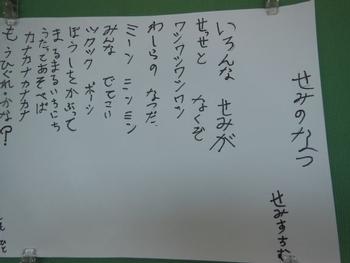 せみのなつ
せみすすむ
いろんな せみが
せっせと なくぞ
ワンワンワンワン
わしらの なつだ
ミーン ミンミン
みんな でてこい
ツクツク ボーシ
ぼうしをかぶって
まるまるいちにち
うたってあそべば
カナカナカナカナ
もうひぐれ・かな?